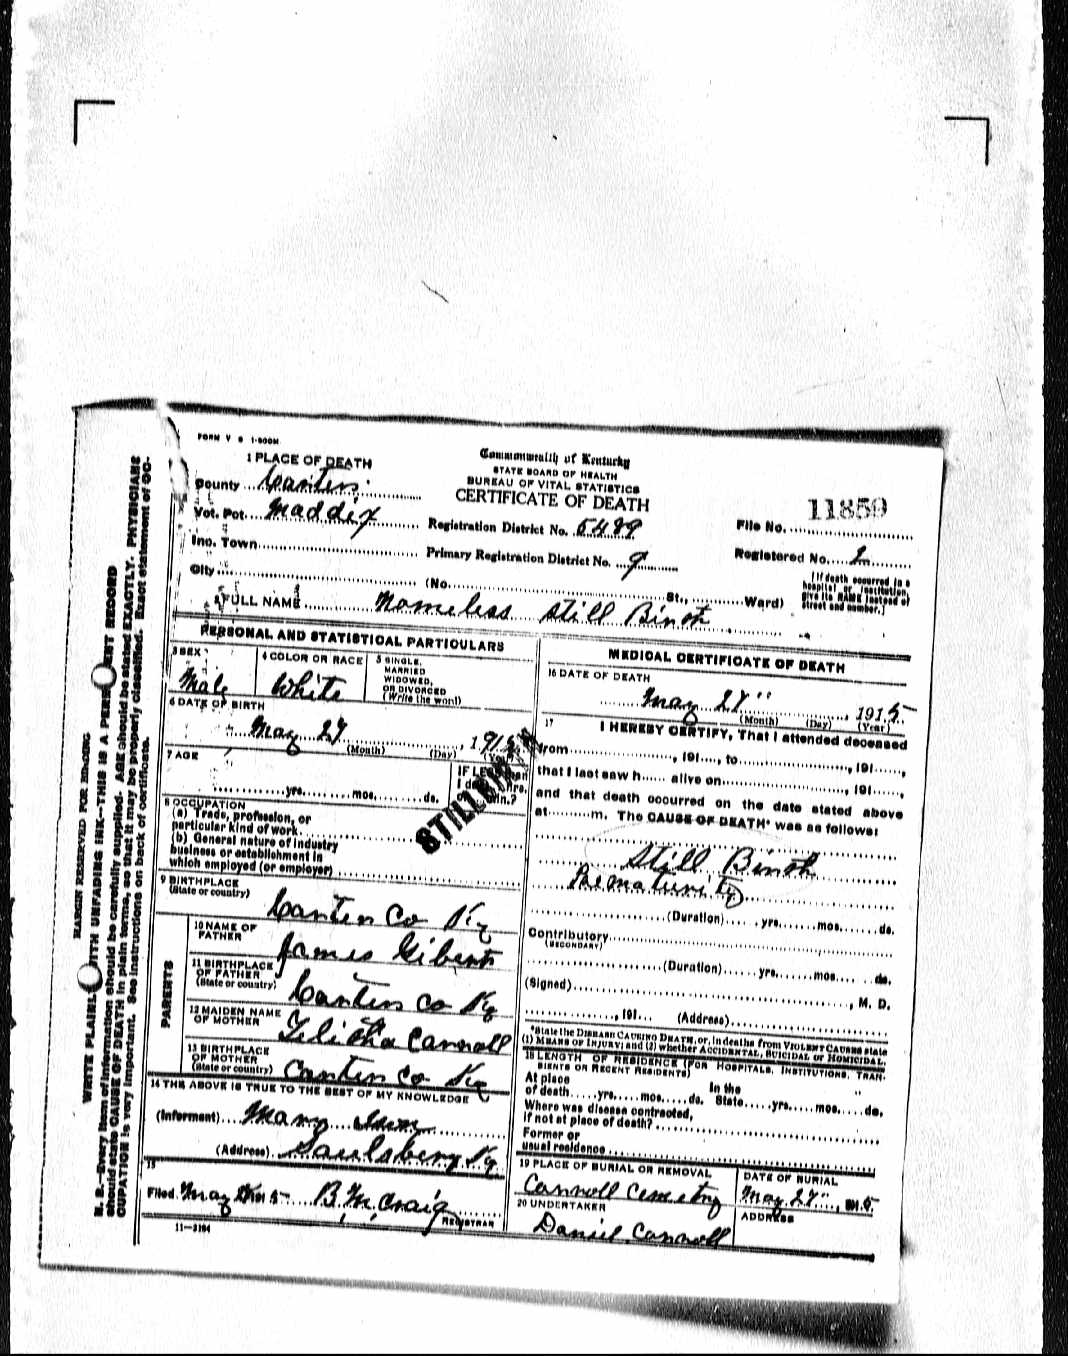 FORM V S 1-500M
1 PLACE OF DEATH
County Carter
Vot. Pct. Maddix
Inc. Town
City
Commonwealth of Kentucky
STATE BOARD OF HEALTH
BUREAU OF VITAL STATISTICS
CERTIFICATE OF DEATH
Registration District No. 5489
Primary Registration District No. 9
(No. St., Ward)
File No. 11859
Registered No. 2
[If death occurred in a
hospital or institution,
give its NAME instead of
street and number.]
2 FULL NAME Nameless Still Birth
PERSONAL AND STATISTICAL PARTICULARS
3 SEX
Male
4 COLOR OR RACE
White
5 SINGLE,
MARRIED
WIDOWED,
OR DIVORCED
(Write the word)
6 DATE OF BIRTH
May 27, 1915
(Month) (Day) (Year)
7 AGE
yrs. mos. ds.
IF LESS than
1 day, hrs.
or min.?
STILLBORN
8 OCCUPATION
(a) Trade, profession, or
particular kind of work
(b) General nature of industry
business or establishment in
which employed (or employer)
9 BIRTHPLACE
(State or country)
Carter Co Ky
PARENTS
10 NAME OF
FATHER
James Gibert
11 BIRTHPLACE
OF FATHER
(State or country)
Carter Co Ky
12 MAIDEN NAME
OF MOTHER
Telitha Carroll
13 BIRTHPLACE
OF MOTHER
(State or country)
Carter Co Ky
14 THE ABOVE IS TRUE TO THE BEST OF MY KNOWLEDGE
(Informant) Mary
(Address) Saulsberry Ky
15
Filed May 1915 B. M. Craig
REGISTRAR
11-3184
MEDICAL CERTIFICATE OF DEATH
16 DATE OF DEATH
May 27", 1915
(Month) (Day) (Year)
17 I HEREBY CERTIFY, That I attended deceased
from , 191 , to , 191 ,
that I last saw h alive on , 191 ,
and that death occurred on the date stated above
at m. The CAUSE OF DEATH* was as follows:
Still Birth
Prematurity
(Duration) yrs. mos. ds.
Contributory
(SECONDARY)
(Duration) yrs. mos. ds.
(Signed) , M. D.
, 191 (Address)
*State the DISEASE CAUSING DEATH, or, in deaths from VIOLENT CAUSES state
(1) MEANS OF INJURY; and (2) whether ACCIDENTAL, SUICIDAL or HOMICIDAL.
18 LENGTH OF RESIDENCE (FOR HOSPITALS, INSTITUTIONS, TRAN-
SIENTS OR RECENT RESIDENTS)
At place
of death yrs. mos. ds.
In the
State yrs. mos. ds.
Where was disease contracted,
if not at place of death?
Former or
usual residence
19 PLACE OF BURIAL OR REMOVAL
Carroll Cemetry
DATE OF BURIAL
May 27", 1915
20 UNDERTAKER
Daniel Carroll
ADDRESS
MARGIN RESERVED FOR BINDING
WRITE PLAINLY WITH UNFADING INK—THIS IS A PERMANENT RECORD
N. B.—Every item of information should be carefully supplied. AGE should be stated EXACTLY. PHYSICIANS
should state CAUSE OF DEATH in plain terms, so that it may be properly classified. Exact statement of OC-
CUPATION is very important. See instructions on back of certificate.